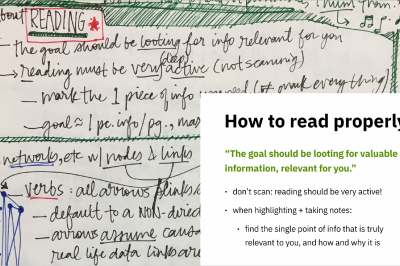 about READING *
- the goal should be looting for info relevant for you
→ reading must be very (deep) active (not scanning)
- mark the 1 piece of info you need (not mark everything)
- goal ≈ 1 pc. info / pg.,
networks, etc w/ nodes & links
verbs: all arrows
- default to a NON-direc
- arrows assume causa
real life data links are
How to read properly
“The goal should be looting for valuable
information, relevant for you.”
• don’t scan: reading should be very active!
• when highlighting + taking notes:
• find the single point of info that is truly
relevant to you, and how and why it is